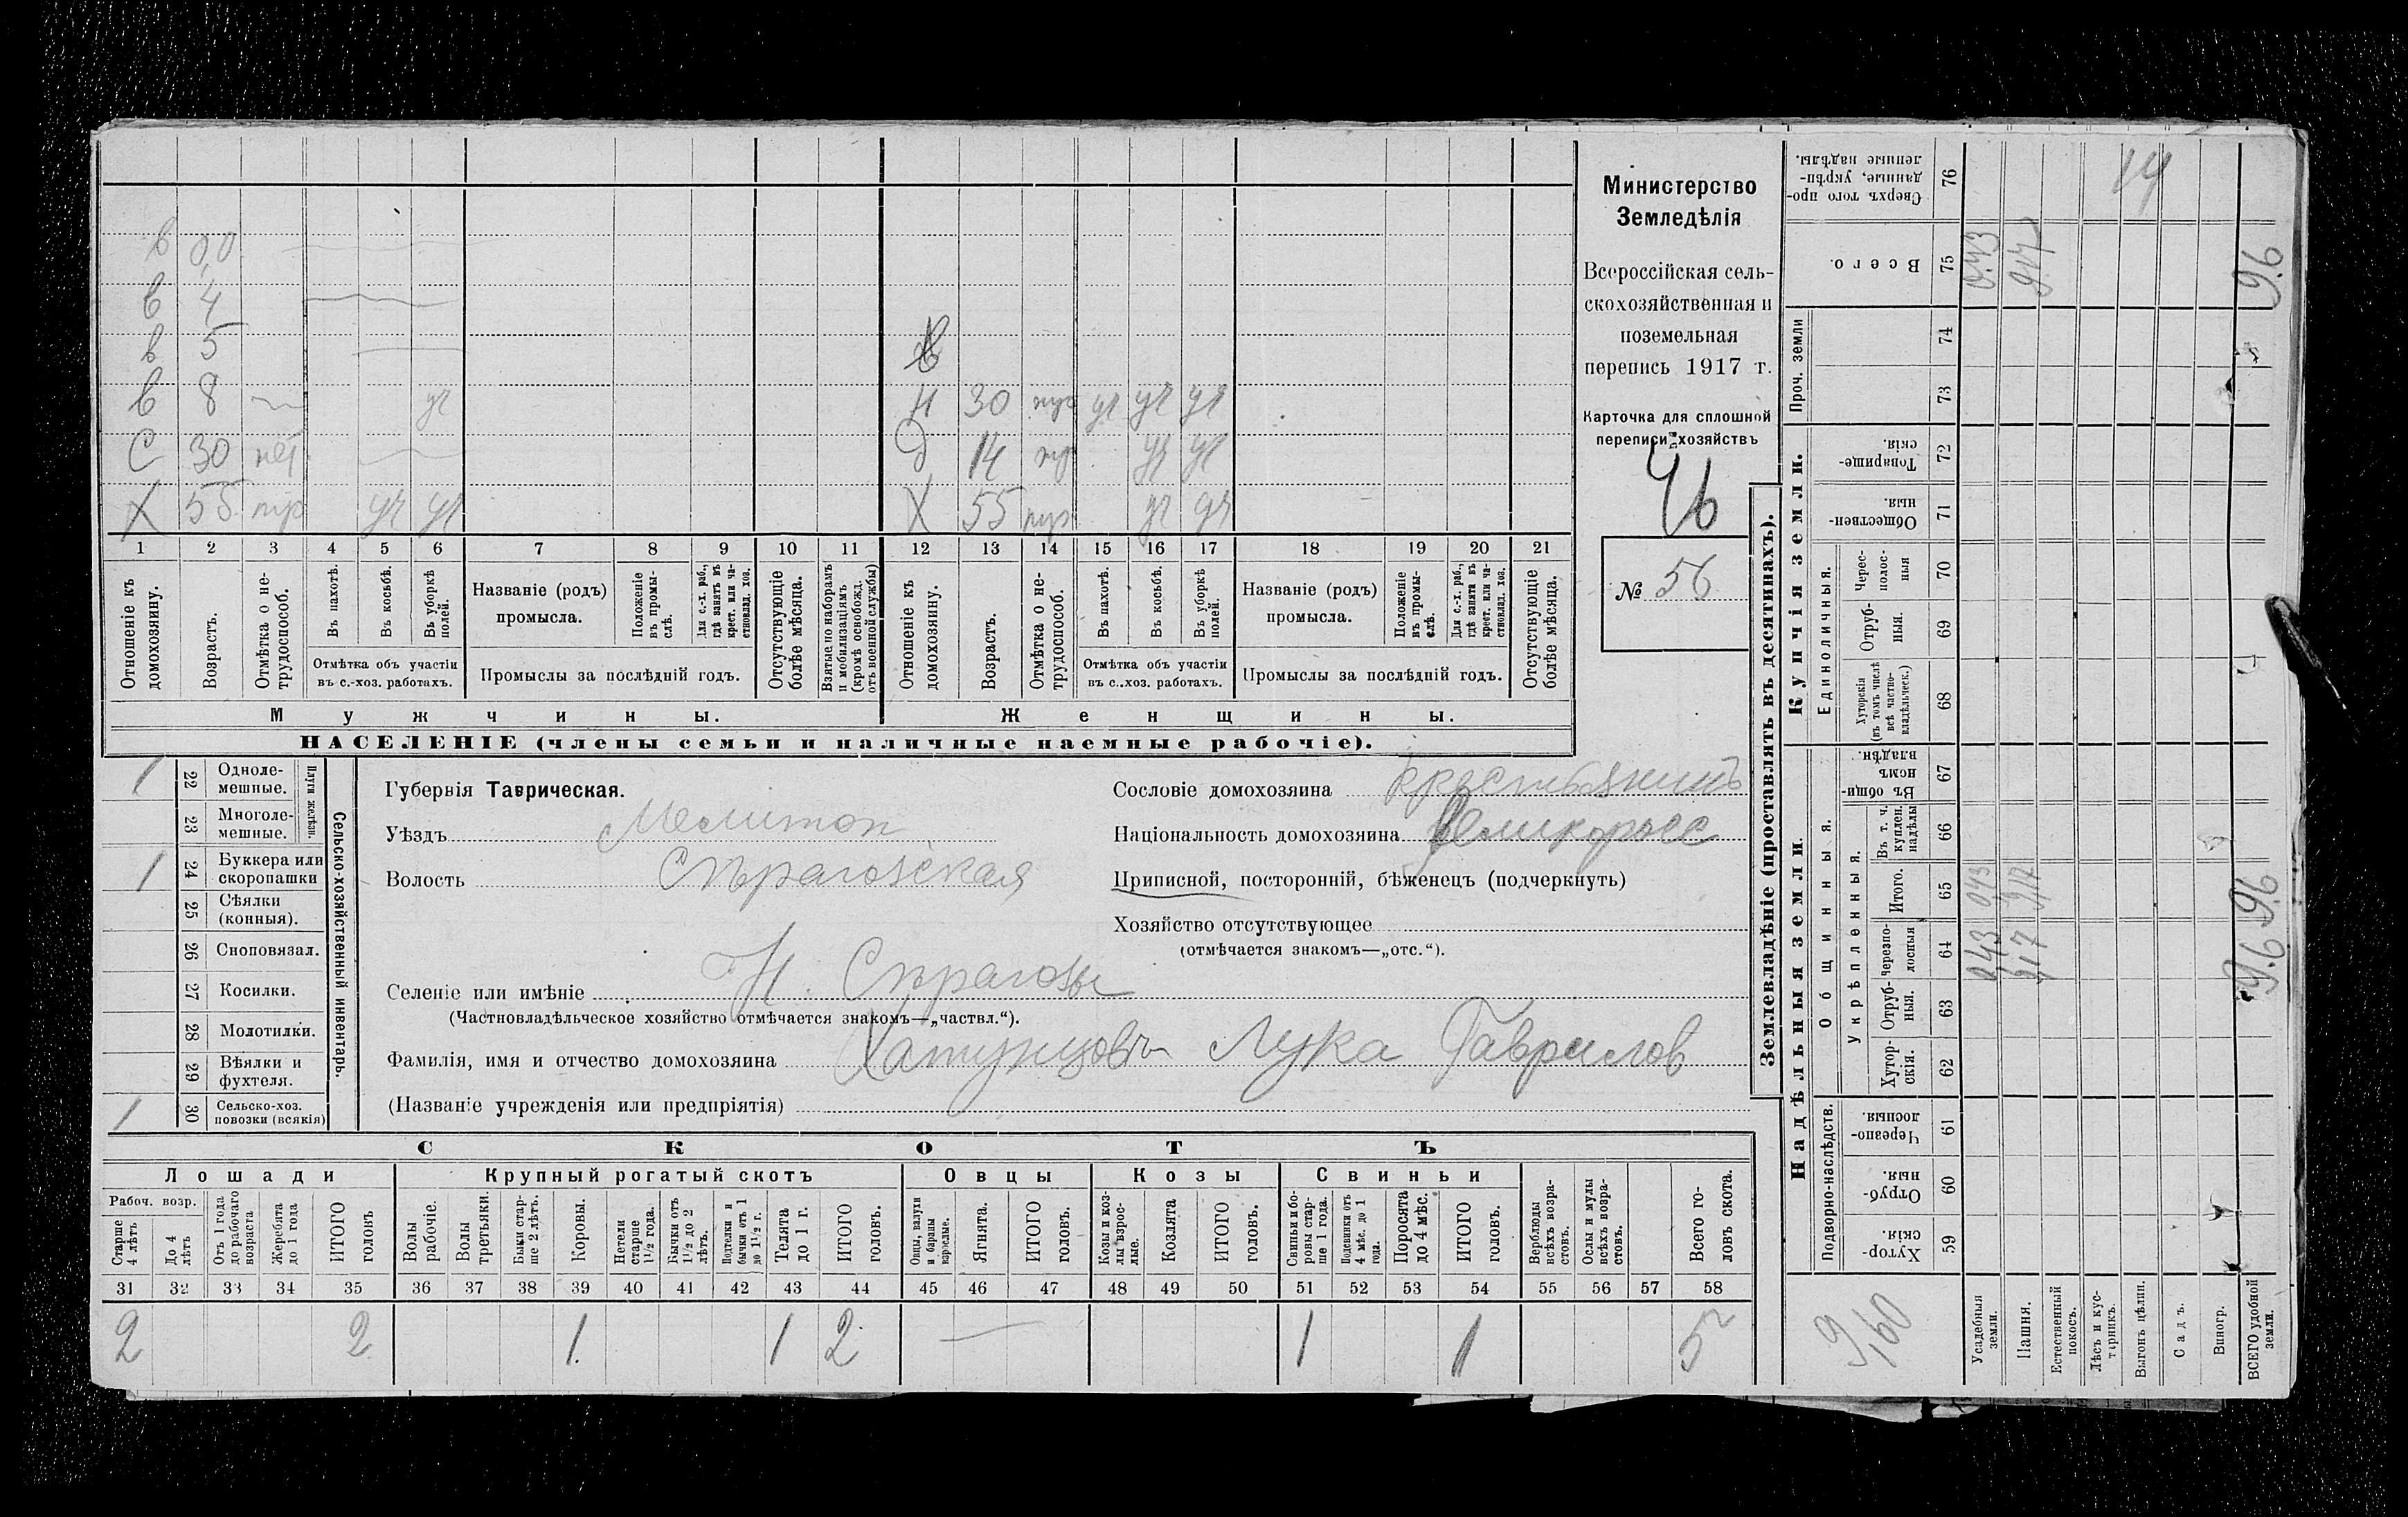 в 0,0
в 4
в 5
в 8 уч
Н 30 уч уч уч
С 30 нет
Д 14 уч уч
Х 55 уч уч
Х 55 уч уч
1 2 3 4 5 6 7 8 9 10 11 12 13 14 15 16 17 18 19 20 21
Отношеніе къ домохозяину.
Возрастъ.
Отмѣтка о не-
трудоспособ.
Въ пахотѣ.
Въ косьбѣ.
Въ уборкѣ
полей.
Отмѣтка объ участіи
въ с.-хоз. работахъ.
Названіе (родъ)
промысла.
Положеніе
въ промы-
слѣ.
Для с.-х. раб.,
гдѣ занятъ въ
крест. или ча-
стновлад. хоз.
Промыслы за послѣдній годъ.
Отсутствующіе
болѣе мѣсяца.
Взятые по наборамъ
и мобилизаціямъ
(кромѣ освобожд.
отъ военной службы)
Отношеніе къ
домохозяину.
Возрастъ.
Отмѣтка о не-
трудоспособ.
Въ пахотѣ.
Въ косьбѣ.
Въ уборкѣ
полей.
Отмѣтка объ участіи
въ с..хоз. работахъ.
Названіе (родъ)
промысла.
Положеніе
въ промы-
слѣ.
Для с.-х. раб.,
гдѣ занята въ
крест. или ча-
стновлад. хоз.
Промыслы за послѣдній годъ.
Отсутствующіе
болѣе мѣсяца.
Мужчины.
Женщины.
НАСЕЛЕНІЕ (члены семьи и наличные наемные рабочіе).
Министерство
Земледѣлія
Всероссійская сель-
скохозяйственная и
поземельная
перепись 1917 г.
Карточка для сплошной
переписи хозяйствъ
46
№ 56
1 22 Одноле-
мешные.
23 Многоле-
мешные.
Плуги желѣзн.
1 24 Буккера или
скоропашки
25 Сѣялки
(конныя).
26 Сноповязал.
27 Косилки.
28 Молотилки.
29 Вѣялки и
фухтеля.
1 30 Сельско-хоз.
повозки (всякія)
Сельско-хозяйственный инвентарь.
Губернія Таврическая.
Уѣздъ Мелитоп
Волость Сѣрагозская
Селеніе или имѣніе Н. Сѣрагозы
(Частновладѣльческое хозяйство отмѣчается знакомъ—„частвл.“).
Фамилія, имя и отчество домохозяина Хатунцовъ Лука Гаврилов
(Названіе учрежденія или предпріятія)
Сословіе домохозяина крестьянинъ
Національность домохозяина Великоросс
Приписной, посторонній, бѣженецъ (подчеркнуть)
Хозяйство отсутствующее
(отмѣчается знакомъ—„отс.“).
СКОТЪ
Лошади
Рабоч. возр.
Старше
4 лѣтъ
До 4
лѣтъ
Отъ 1 года
до рабочаго
возраста
Жеребята
до 1 года
ИТОГО
головъ
Крупный рогатый скотъ
Волы
рабочіе.
Волы
третьяки.
Быки стар-
ше 2 лѣтъ.
Коровы.
Нетели
старше
1½ года.
Бычки отъ
1½ до 2
лѣтъ.
Подтелки и
бычки отъ 1
до 1½ г.
Телята
до 1 г.
ИТОГО
головъ.
Овцы
Овцы, валухи
и бараны
взрослые.
Ягнята.
ИТОГО
головъ.
Козы
Козы и коз-
лы взрос-
лые.
Козлята
ИТОГО
головъ.
Свиньи
Свиньи и бо-
ровы стар-
ше 1 года.
Подсвинки отъ
4 мѣс. до 1
года.
Поросята
до 4 мѣс.
ИТОГО
головъ.
Верблюды
всѣхъ возра-
стовъ.
Ослы и мулы
всѣхъ возра-
стовъ.
Всего го-
ловъ скота.
31 32 33 34 35 36 37 38 39 40 41 42 43 44 45 46 47 48 49 50 51 52 53 54 55 56 57 58
2 2 1 1 2 1 1 5
Землевладѣніе (проставлять въ десятинахъ).
Надѣльныя земли.
Подворно-наслѣдств.
Хутор-
скія. 59
Отруб-
ныя. 60
Черезпо-
лосныя 61
Общинныя.
Укрѣпленныя.
Хутор-
скія. 62
Отруб-
ныя. 63
черезпо-
лосныя 64
Итого. 65
Въ т. ч.
куплен.
надѣлы 66
Въ общи-
номъ
владѣн. 67
Купчія земли.
Единоличныя.
Хуторскія
(въ томъ числѣ
всѣ частно-
владѣльческ.) 68
Отруб-
ныя. 69
Черес-
полос-
ныя 70
Обществен-
ныя 71
Товарище-
скія. 72
Проч. земли
73
74
Всего. 75
Сверхъ того про-
данные, укрѣп-
ленные надѣлы. 76
9,60
Усадебныя
земли. 0,43 043 0,43
Пашня. 9,17 9,17 9,17
Естественный
покосъ.
Лѣсъ и кус-
тарникъ.
Выгонъ цѣлин.
Садъ.
Виногр.
ВСЕГО удобной
земли. 9.6 9.6 9.6
14